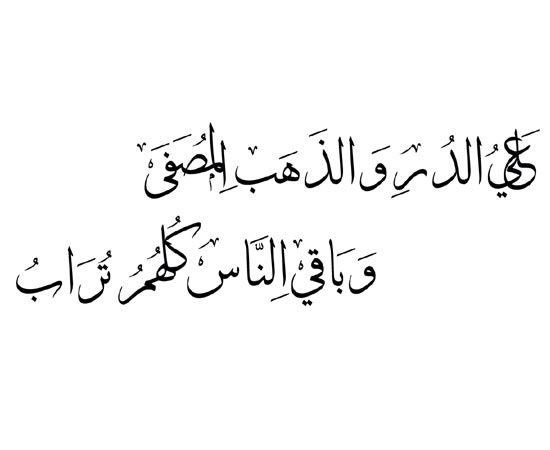 عَليُ الدُرِ وَ الذَهَب اِلمُصَفىَ
وَ بَاقي اِلنَّاس كُلهُمُ تُرَابُ